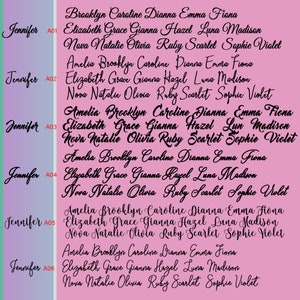 Brooklyn Caroline Dianna Emma Fiona
Jennifer A01 Elizabeth Grace Gianna Hazel Luna Madison
Nova Natalie Olivia Ruby Scarlet Sophie Violet
Amelia Brooklyn Caroline Dianna Emma Fiona
Jennifer A02 Elizabeth Grace Gianna Hazel Luna Madison
Nova Natalie Olivia Ruby Scarlet Sophie Violet
Amelia Brooklyn Caroline Dianna Emma Fiona
Jennifer A03 Elizabeth Grace Gianna Hazel Lun Madison
Nova Natalie Olivia Ruby Scarlet Sophie Violet
Amelia Brooklyn Caroline Dianna Emma Fiona
Jennifer A04 Elizabeth Grace Gianna Hazel Luna Madison
Nova Natalie Olivia Ruby Scarlet Sophie Violet
Amelia Brooklyn Caroline Dianna Emma Fiona
Jennifer A05 Elizabeth Grace Gianna Hazel Luna Madison
Nova Natalie Olivia Ruby Scarlet Sophie Violet
Amelia Brooklyn Caroline Dianna Emma Fiona
Jennifer A06 Elizabeth Grace Gianna Hazel Luna Madison
Nova Natalie Olivia Ruby Scarlet Sophie Violet